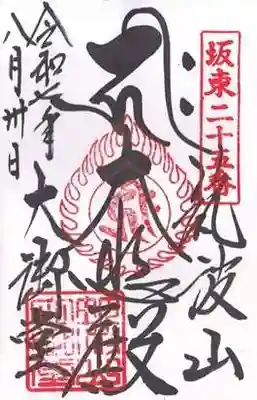 坂東二十五番
筑波山
大悲殿
大御堂
令和七年
八月卅日